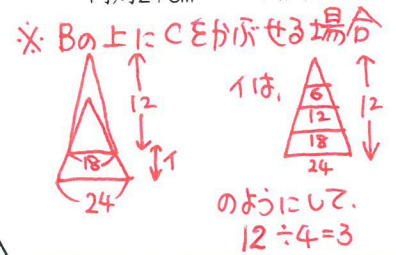 ※ Bの上にCをかぶせる場合
12
18
イ
24
イは、
6
12
18
24
12
のようにして、
12÷4=3